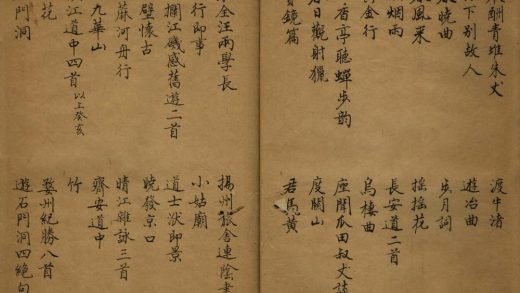 酬青堆朱丈
下別故人
曉曲
風采
烟雨
金行
香亭聽蟬步韵
日觀射獵
鏡篇
渡牛渚
遊冶曲
步月詞
搖搖花
長安道二首
烏棲曲
座間瓜田叔丈
度關山
君馬黃
全汪兩學長
行即事
攔江磯感舊遊二首
壁懷古
蔴河舟行
九華山
江道中四首以上癸亥
花
門洞
揚州舍連陰書
小姑廟
道士洑即景
曉發京口
晴江雜詠三首
齊安道中
竹
婺州紀勝八首
遊石門洞四絕句